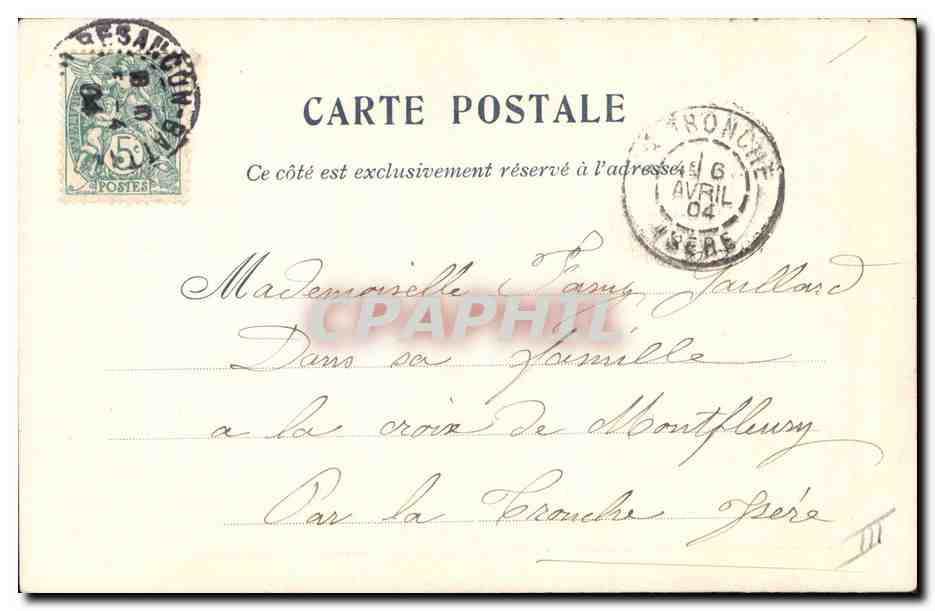 BESANÇON-BATT
5 - 4
04
5c
POSTES
CARTE POSTALE
Ce côté est exclusivement réservé à l'adresse
LA TRONCHE
6
AVRIL
04
ISÈRE
Mademoiselle Fany Gaillard
CPAPHIL
Dans sa famille
a la croix de Montfleury
Par la Tronche Isére
III